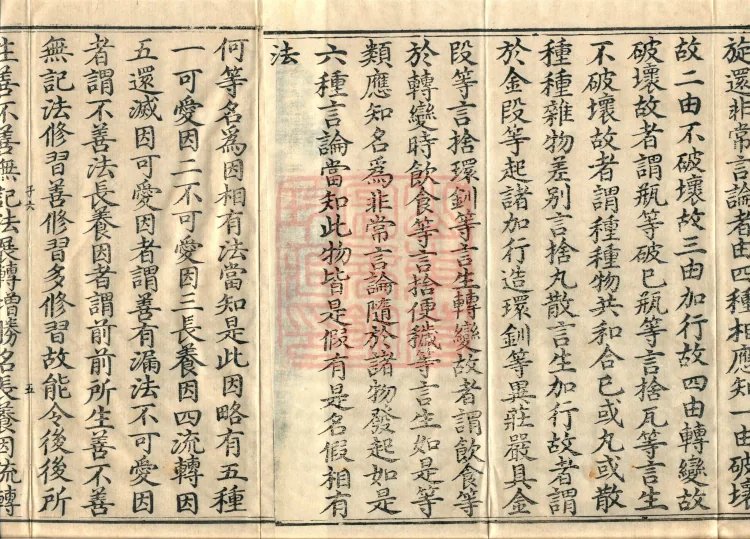 旋還非常言論者由四種相應知一由破壞
故二由不破壞故三由加行故四由轉變故
破壞故者謂瓶等破已瓶等言捨瓦等言生
不破壞故者謂種種物共和合已或丸或散
種種雜物差別言捨丸散言生加行故者謂
於金段等起諸加行造環釧等異莊嚴具金
段等言捨環釧等言生轉變故者謂飲食等
於轉變時飲食等言捨便穢等言生如是等
類應知名爲非常言論隨於諸物發起如是
六種言論當知此物皆是假有是名假相有
法
何等名爲因相有法當知是此因略有五種
一可愛因二不可愛因三長養因四流轉因
五還滅因可愛因者謂善有漏法不可愛因
者謂不善法長養因者謂前前所生善不善
無記法修習善修習多修習故能令後後所
生善不善無記法展轉增勝名長養因流轉
五